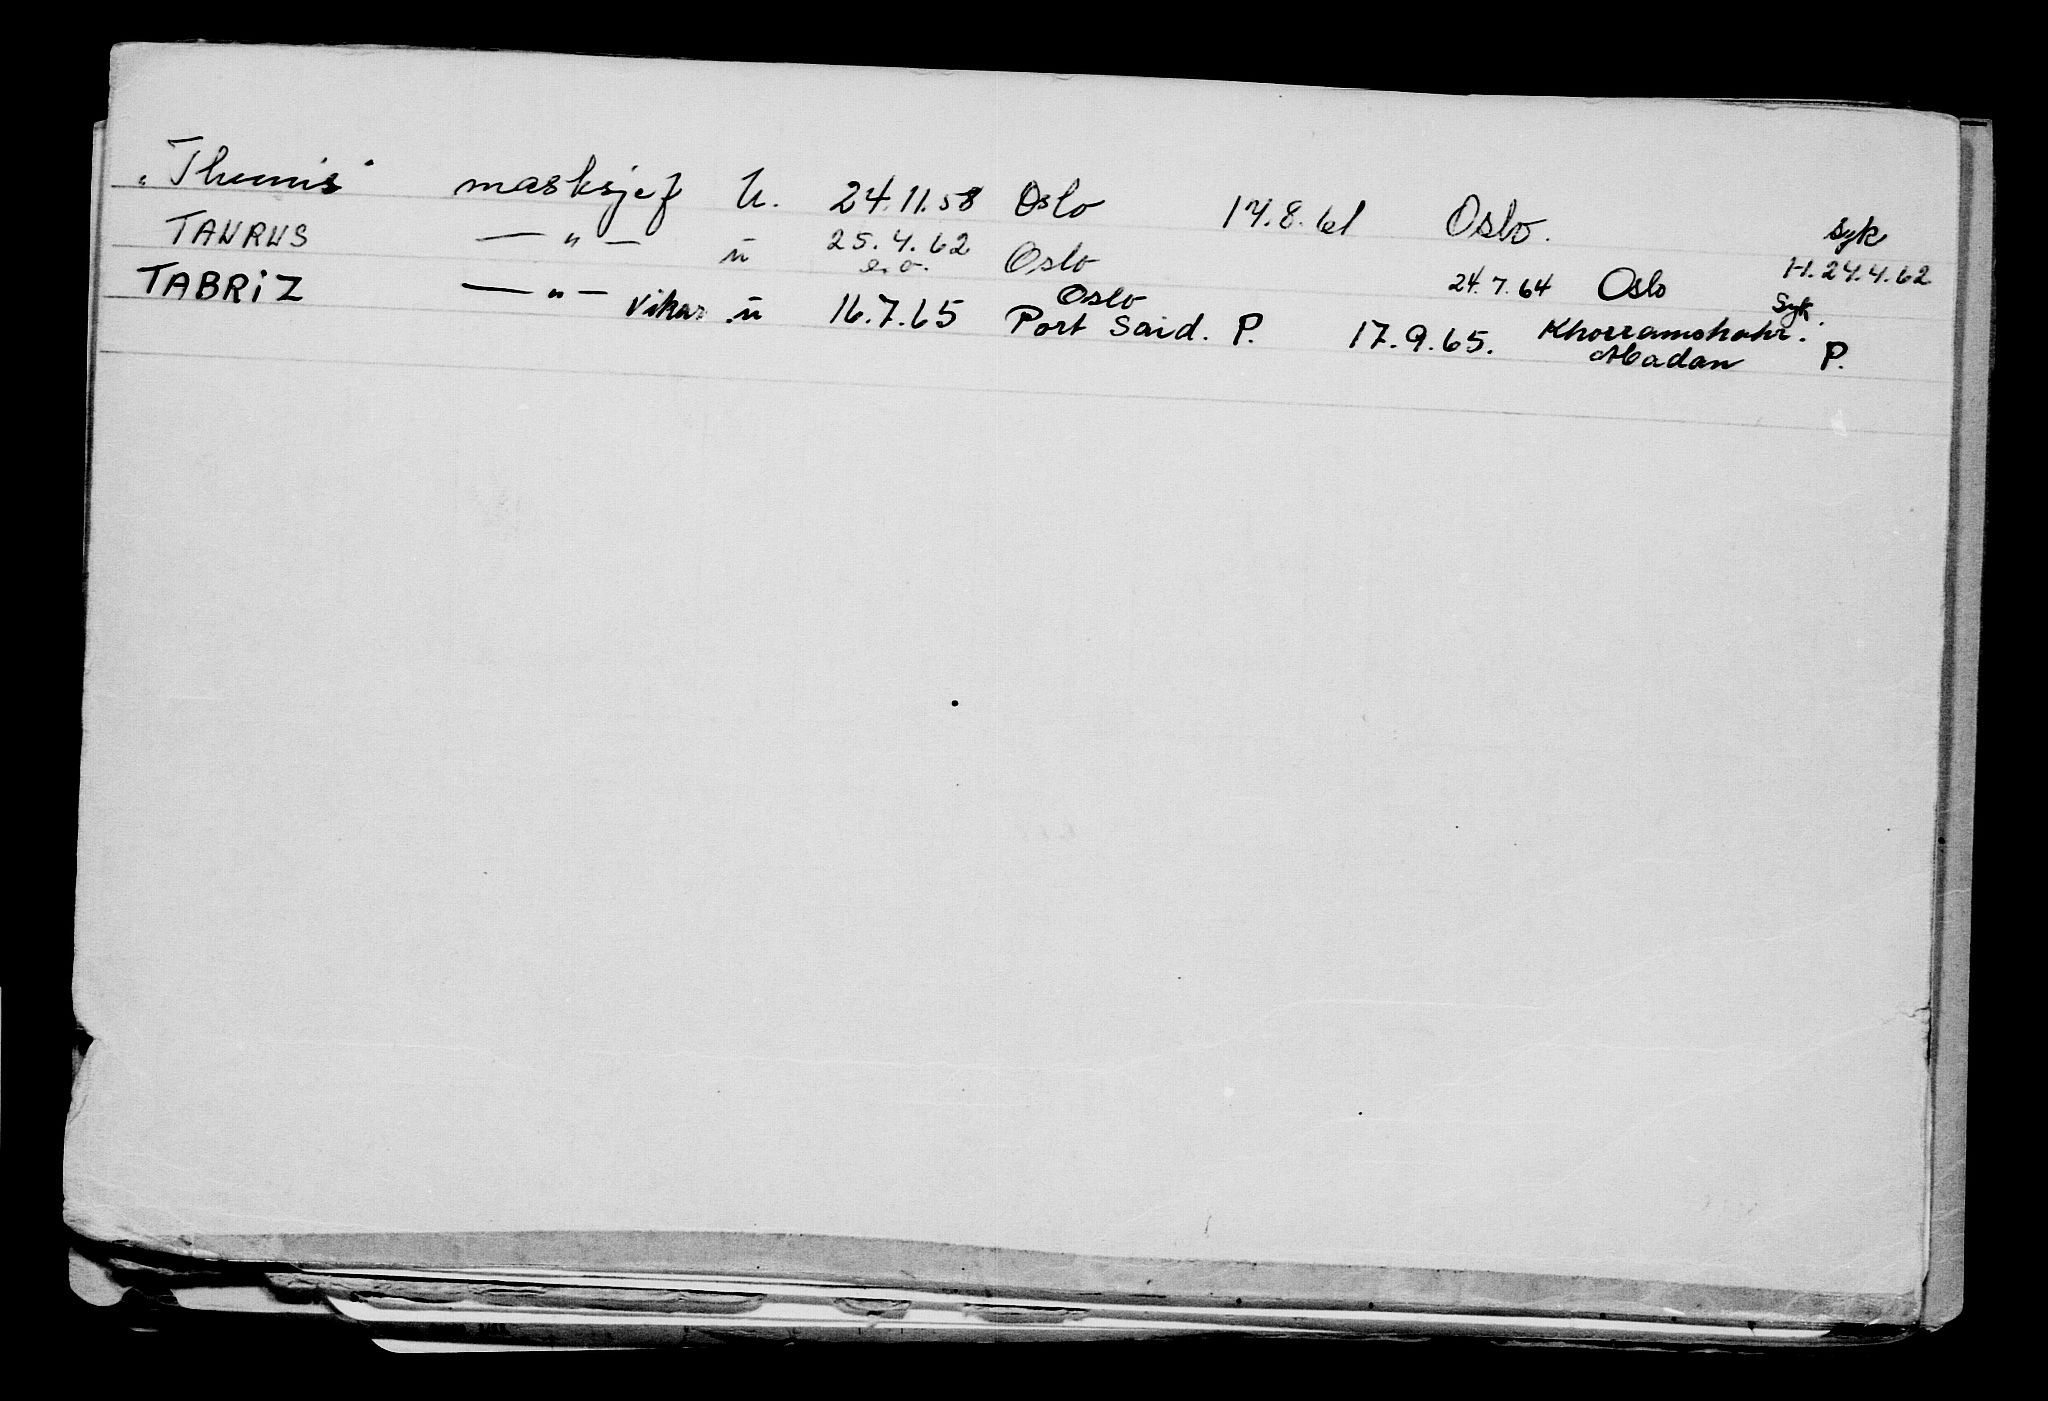 "Themis" masksjef U. 24.11.58 Oslo 17.8.61 Oslo. Syk
TAURUS — " — u 25.4.62 Oslo 24.7.64 Oslo H. 24.4.62
e.o.
TABRIZ — " — Vikar u 16.7.65 Oslo Syk.
Port Said. P. 17.9.65. Khorramshahr.
Abadan P.